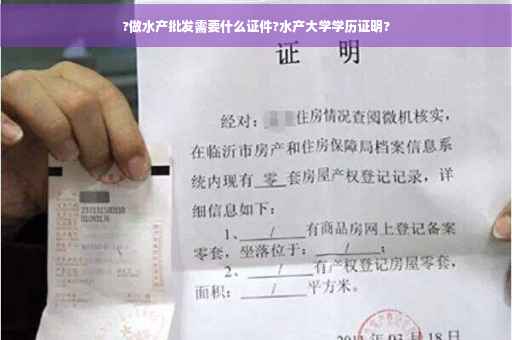 ?做水产批发需要什么证件?水产大学学历证明?
证 明
经对：住房情况查阅微机核实，
在临沂市房产和住房保障局档案信息系
统内现有 零 套房屋产权登记记录，详
细信息如下：
1、 / 有商品房网上登记备案
零套，坐落位于： / ；
2、 / 有产权登记房屋零套，
面积： / 平方米。
03月18日